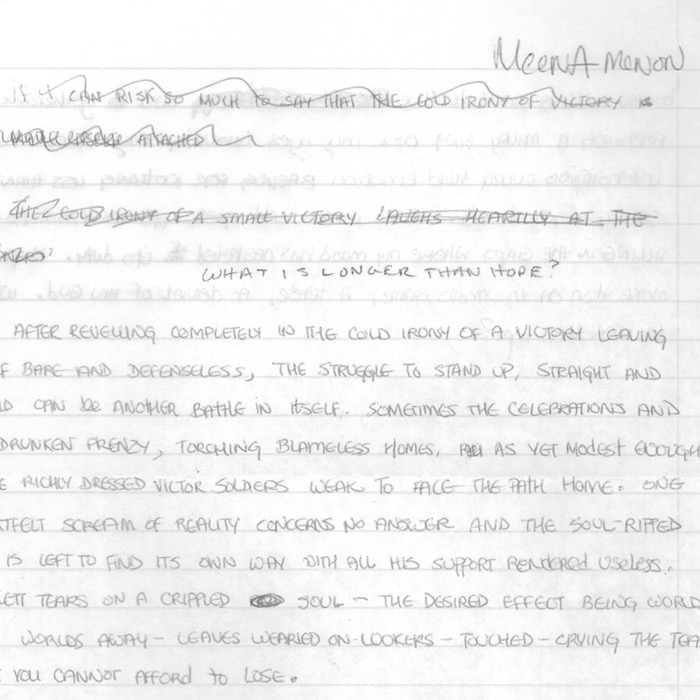 MeenA MENON
if I CAN RISK SO MUCH to SAY THAT THE COLD IRONY OF VICTORY is
ATTACHED
THE COLD IRONY OF A SMALL VICTORY LAUGHS HEARTILY AT THE
WHAT IS LONGER THAN HOPE?
AFTER REVELLING COMPLETELY IN THE COLD IRONY OF A VICTORY LEAVING
F BARE AND DEFENSELESS, THE STRUGGLE TO STAND UP, STRAIGHT AND
D CAN be ANOTHER BATTLE IN ITSELF. SOMETIMES THE CELEBRATIONS AND
DRUNKEN FRENZY, TORCHING BLAMELESS HOMES, AS YET MODEST ENOUGH
E RICHLY DRESSED VICTOR SOLDIERS WEAK TO FACE THE PATH HOME. ONE
TFELT SCREAM OF REALITY CONCERNS NO ANSWER AND THE SOUL-RIPPED
IS LEFT TO FIND ITS OWN WAY WITH ALL HIS SUPPORT RENDERED USELESS.
TEARS ON A CRIPPLED SOUL - THE DESIRED EFFECT BEING WORLD
WORLDS AWAY - LEAVES WEARIED ON-LOOKERS - TOUCHED - CRYING THE TEA
YOU CANNOT AFFORD to LOSE.